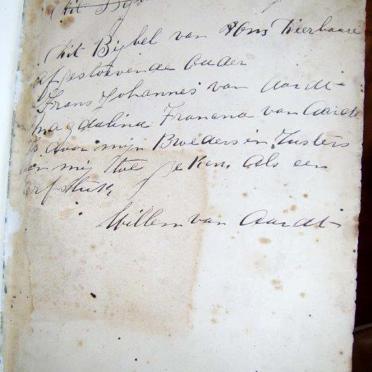 Dit
Dit Bijbel van Ons Dierbaare
afgestorvende Ouder
Frans Johannes van Aardt
Magdalina Franana van Aardt
is door mijn Broeders in Zusters
aan mij toe gekend als een
erfstuk
Willem van Aardt